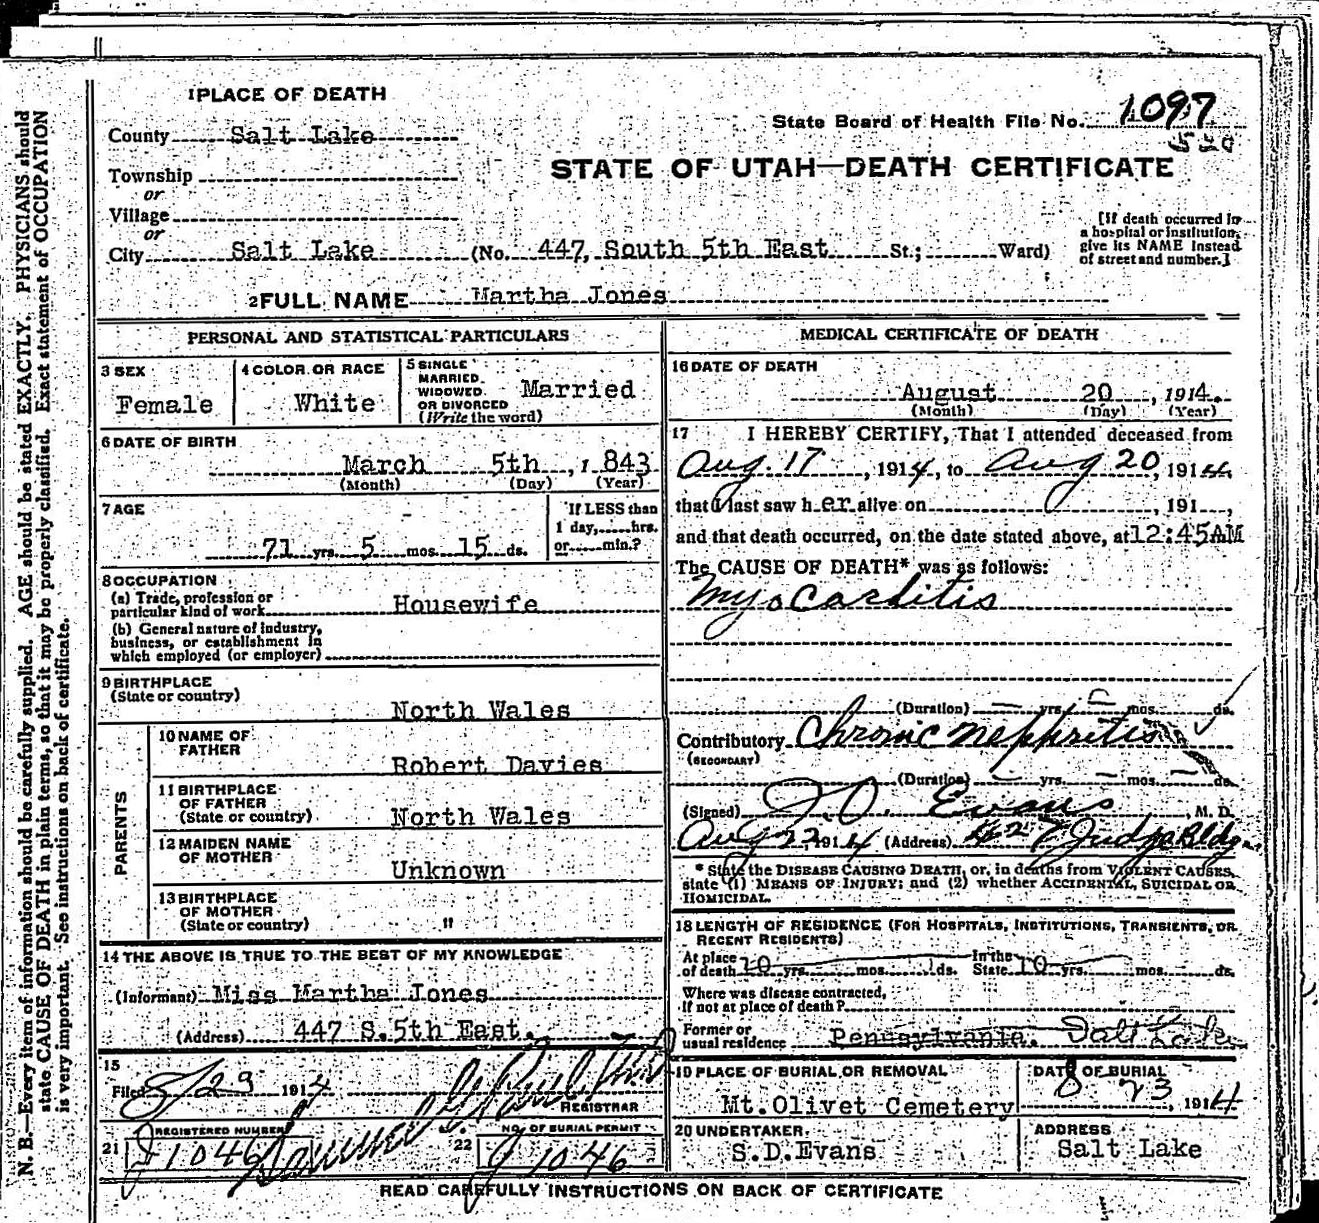 1 PLACE OF DEATH
County Salt Lake
Township
or
Village
or
City Salt Lake (No. 447, South 5th East St.; Ward)
State Board of Health File No. 1097
520
STATE OF UTAH—DEATH CERTIFICATE
[If death occurred in
a hospital or institution,
give its NAME instead
of street and number.]
2 FULL NAME Martha Jones
PERSONAL AND STATISTICAL PARTICULARS
3 SEX
Female
4 COLOR OR RACE
White
5 SINGLE
MARRIED
WIDOWED
OR DIVORCED
(Write the word)
Married
6 DATE OF BIRTH
March 5th, 1 843
(Month) (Day) (Year)
7 AGE
71 yrs. 5 mos. 15 ds.
If LESS than
1 day, hrs.
or min.?
8 OCCUPATION
(a) Trade, profession or
particular kind of work Housewife
(b) General nature of industry,
business, or establishment in
which employed (or employer)
9 BIRTHPLACE
(State or country)
North Wales
PARENTS
10 NAME OF
FATHER
Robert Davies
11 BIRTHPLACE
OF FATHER
(State or country) North Wales
12 MAIDEN NAME
OF MOTHER
Unknown
13 BIRTHPLACE
OF MOTHER
(State or country) "
14 THE ABOVE IS TRUE TO THE BEST OF MY KNOWLEDGE
(Informant) Miss Martha Jones
(Address) 447 S.5th East.
15
Filed 8/23 1914
REGISTRAR
21 REGISTERED NUMBER
1046
22 NO. OF BURIAL PERMIT
1046
MEDICAL CERTIFICATE OF DEATH
16 DATE OF DEATH
August 20, 1914.
(Month) (Day) (Year)
17 I HEREBY CERTIFY, That I attended deceased from
Aug. 17, 1914, to Aug 20, 1914
that I last saw her alive on , 191 ,
and that death occurred, on the date stated above, at 12:45AM
The CAUSE OF DEATH* was as follows:
Myocarditis
(Duration) yrs. mos. ds.
Contributory Chronic nephritis
(SECONDARY)
(Duration) yrs. mos. ds.
(Signed) J.O. Evans, M. D.
Aug 22 1914 (Address) 427 Judge Bldg
* State the DISEASE CAUSING DEATH, or, in deaths from VIOLENT CAUSES,
state (1) MEANS OF INJURY; and (2) whether ACCIDENTAL, SUICIDAL OR
HOMICIDAL.
18 LENGTH OF RESIDENCE (FOR HOSPITALS, INSTITUTIONS, TRANSIENTS, OR
RECENT RESIDENTS)
At place
of death 10 yrs. mos. ds.
In the
State 10 yrs. mos. ds.
Where was disease contracted,
If not at place of death?
Former or
usual residence Pennsylvania. Salt Lake
19 PLACE OF BURIAL OR REMOVAL
Mt.Olivet Cemetery
DATE OF BURIAL
8 23, 1914
20 UNDERTAKER
S.D.Evans
ADDRESS
Salt Lake
READ CAREFULLY INSTRUCTIONS ON BACK OF CERTIFICATE
N. B.—Every item of information should be carefully supplied. AGE should be stated EXACTLY. PHYSICIANS should
state CAUSE OF DEATH in plain terms, so that it may be properly classified. Exact statement of OCCUPATION
is very important. See instructions on back of certificate.